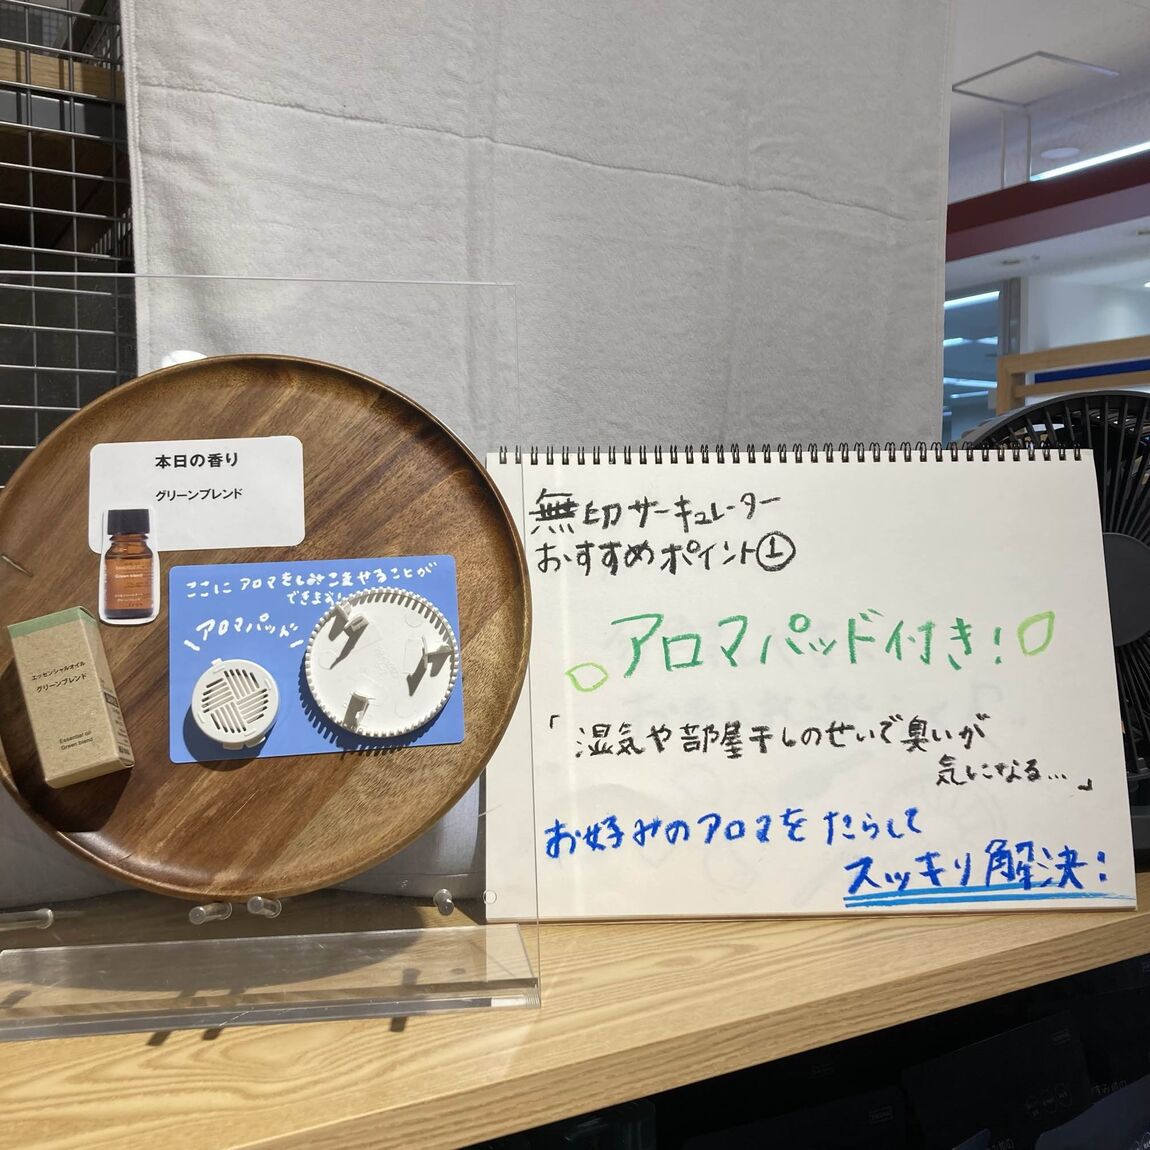 本日の香り
グリーンブレンド
Green blend
エッセンシャルオイル
グリーンブレンド
Essential oil
Green blend
ここにアロマをしみこませることが
できます!
\アロマパッド/
無印サーキュレーター
おすすめポイント①
アロマパッド付き!
「湿気や部屋干しのせいで臭いが
気になる…」
お好みのアロマをたらして
スッキリ解決!